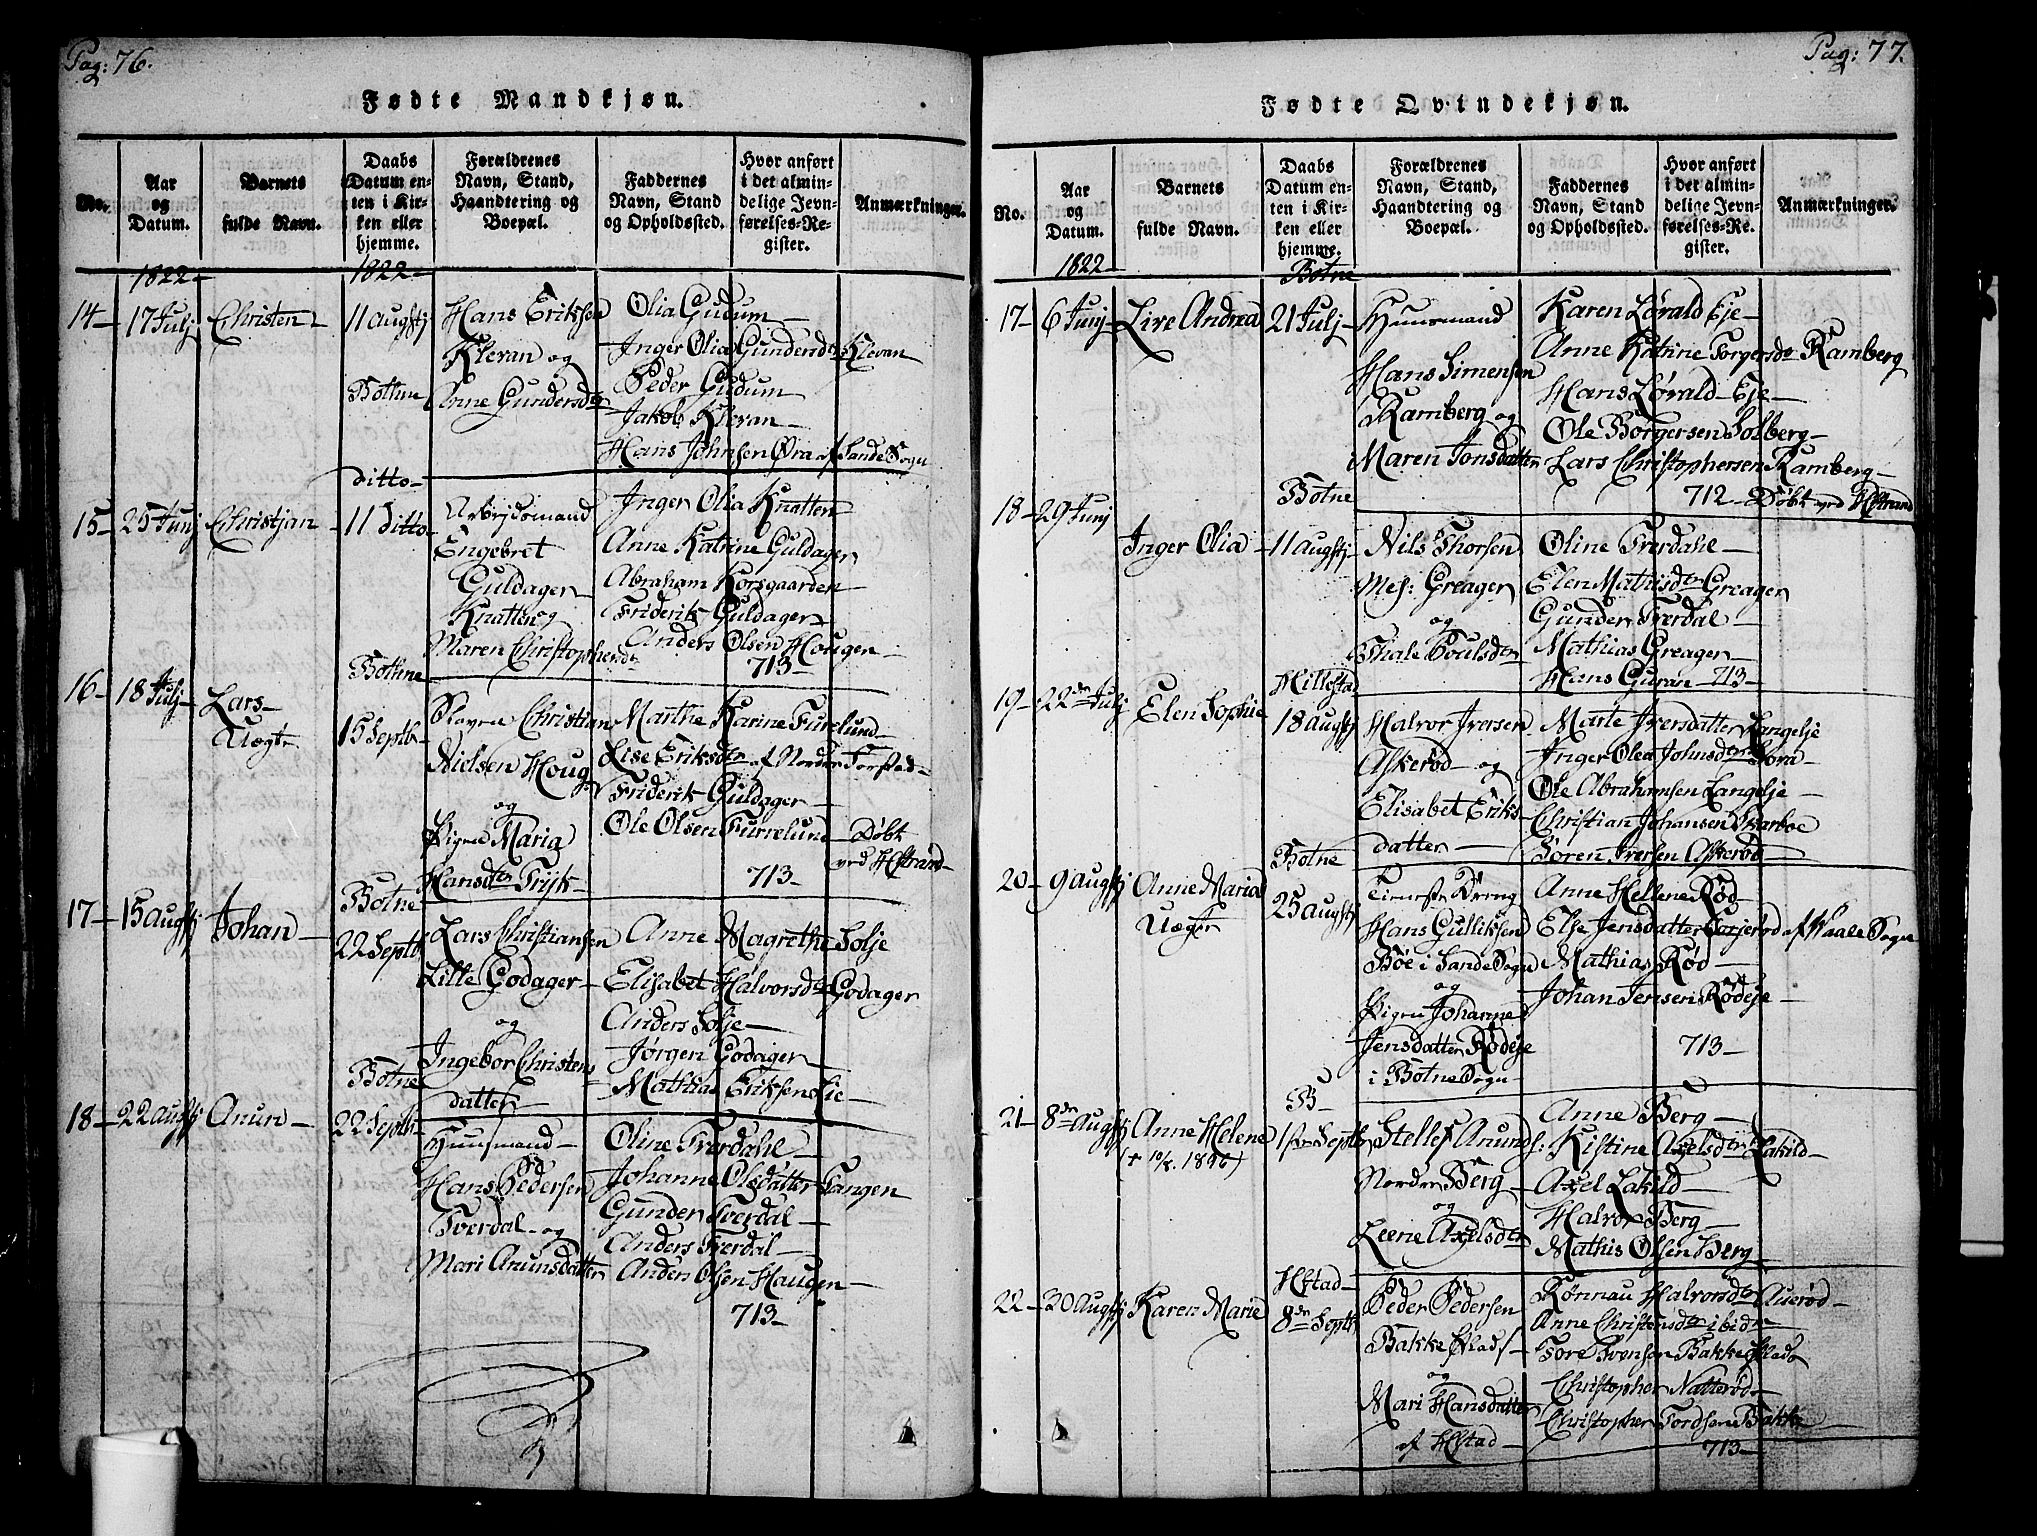 Pag: 76.
Fødte Mandkjøn.
No.
Aar og Datum.
Barnets fulde Navn.
Daabs Datum enten i Kirken eller hjemme.
Forældrenes Navn, Stand, Haandtering og Boepæl.
Faddernes Navn, Stand og Opholdssted.
Hvor anført i det almindelige Jevnførelses-Register.
Anmærkninger.
1822
1822
14 17 Julj Christen 11 Augstj
Bothne
Hans Eriksen
Klevan og
Anne Gundersdtr
Olia Gudum
Inger Olia Gundersdtr Klevan
Peder Gudum
Jakob Klevan
Hans Johnsen Øra af Sande Sogn
ditto
15 25 Junj Christjan 11 Ditto
Arbejdsmand
Engebret
Guldager
Knatten og
Maren Christophersdtr
Inger Olia Knatten
Anne Katrine Guldager
Abraham Korsgaarden
Friderik Guldager
Anders Olsen Hougen
713
Bothne
16 18 Julj Lars
Uægte
15 Septb
Christian
Nielsen Houg
og
Pigen Maria
Hansdtr Trijk
Marthe Karine Furelund
Lise Eriksdtr af Nordre
Friderik Guldager
Ole Olsen Furrelund
Døbt
ved Hstrand
713
Botne
17 15 Augstj Johan 22 Septb
Lars Christiansen
Lille Godager
og
Ingebor Christens
datter
Anne Magrethe Solje
Elisabet Halvorsdtr Godager
Anders Solje
Jørgen Godager
Mathias Eriksen
Botne
18 22 Augstj Anun 22 Septb
Huusmand
Hans Pedersen
Tverdal og
Mari Anunsdatter
Oline Tverdahl
Johanne Olsdatter Tangen
Gunder Tverdal
Anders Tverdal
Anders Olsen Haugen
713
Pag: 77.
Fødte Qvindekjøn.
No.
Aar og Datum.
Barnets fulde Navn.
Daabs Datum enten i Kirken eller hjemme.
Forældrenes Navn, Stand, Haandtering og Boepæl.
Faddernes Navn, Stand og Opholdssted.
Hvor anført i der almindelige Jevnførelses-Register.
Anmærkninger.
1822
Botne
17 6 Junj Live Andrea 21 Julj
Huusmand
Hans Simensen
Ramberg og
Maren Jonsdatter
Karen Løvald Eje
Anne Katrine Torgersdtr Ramberg
Hans Løvald Eje
Ole Borgersen Solberg
Lars Christophersen Ramberg
712 Døbt ved Hstrand
Botne
18 29 Junj Inger Olia 11 Augstj
Nils Thorsen
Greager
og
Thale Poulsdtr
Oline Tverdahl
Elen Mathisdtr Greager
Gunder Tverdal
Mathias Greager
Hans 713
Hillestad
19 22de Julj Elen Sophie 18 Augstj
Halvor Iversen
Askerød og
Elisabet Eriks
datter
Marte Iversdatter Langelje
Inger Olea Johnsdtr
Ole Abrahamsen Langelje
Christian Johansen Skarboe
Søren Iversen Askerød
Botne
20 9 Augstj Anne Maria
Uægte
25 Augstj
Hans Gulliksen
Bøe i Sande Sogn
og
Pigen Johanne
Jensdatter Rødeje
i Botne Sogn
Anne Hellene Rød
Else Jensdatter af Vaale Sogn
Mathias Rød
Johan Jensen Rødeje
713
B
21 8de Augstj Anne Helene
(+ 10/8. 1896)
1ste Septb
Stellef Anunds:
Nordre Berg
og
Leene Axelsdtr
Anne Berg
Kistine Axelsdtr Lakild
Axel Lakild
Halvor Berg
Mathis Olsen Berg
Hstad
22 30 Augstj Karen Marie 8de Septb
Peder Pedersen
Bakke
og
Mari Hansdatter
af Hstad
Rønnau Halvorsdtr Auerød
Anne Christensdtr ibidm
Tore Svensen Bakke
Christopher Natterød
Christopher Tordsen Bakke
713